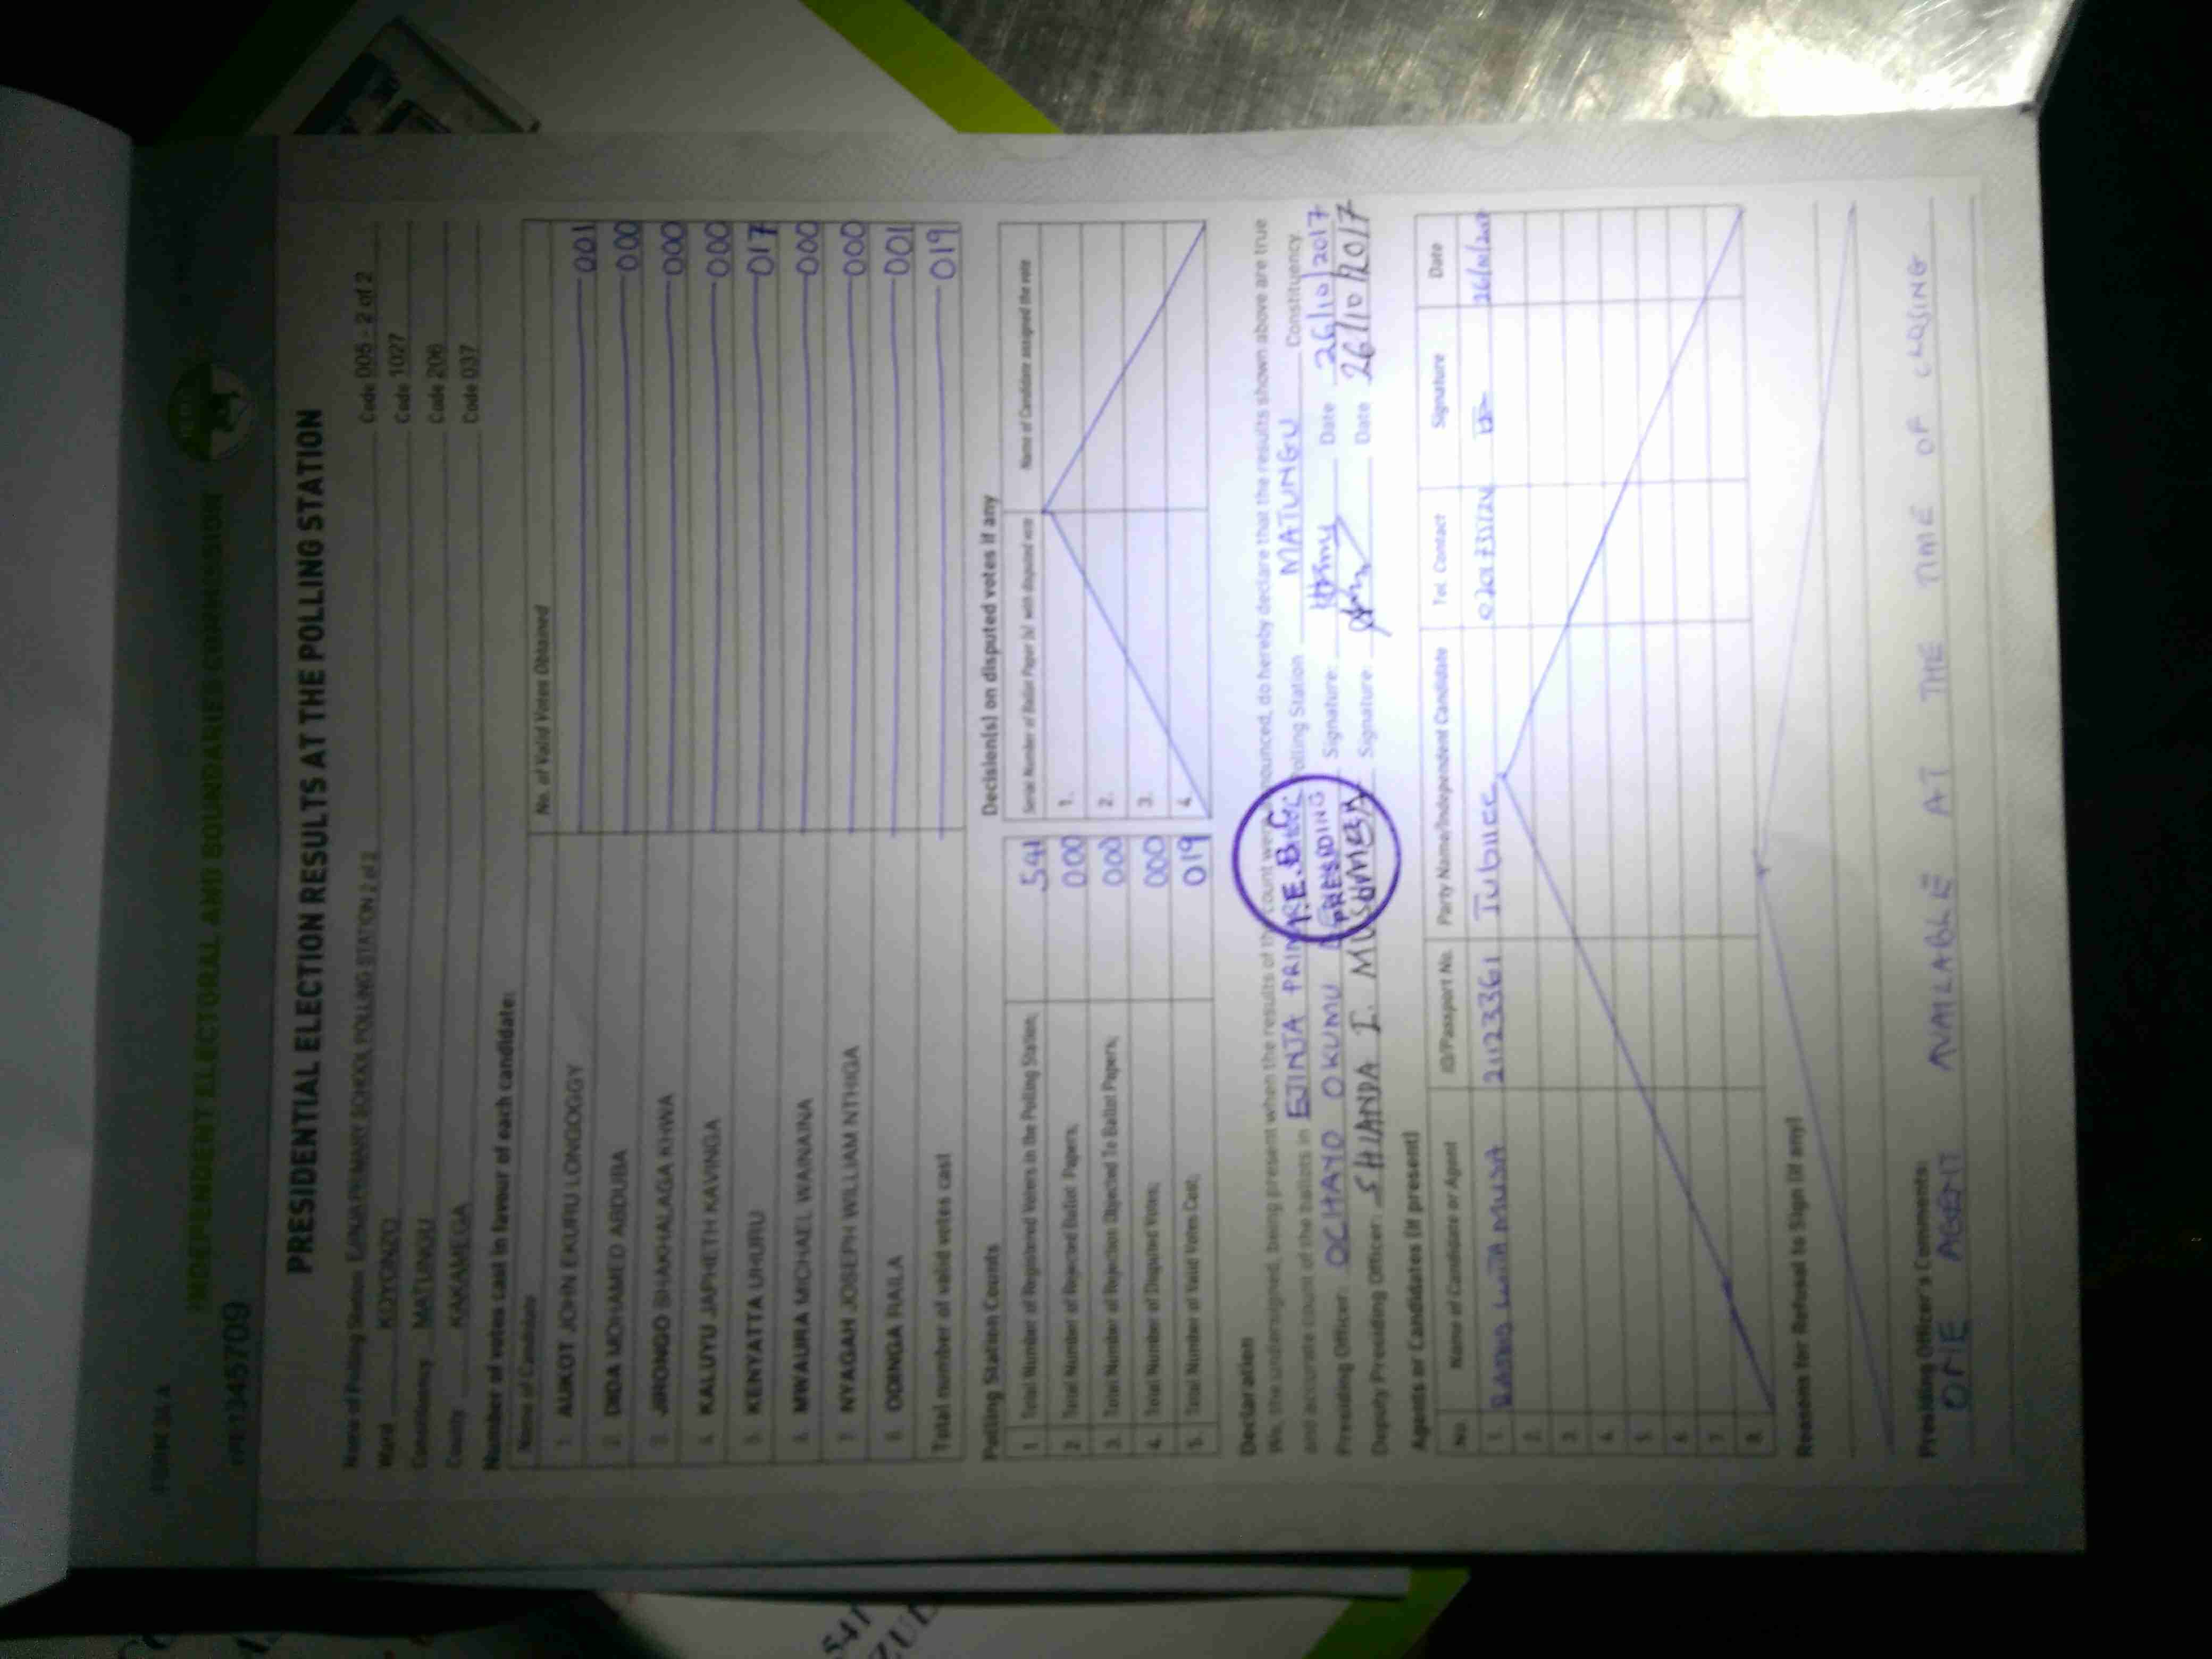 FORM 34A
INDEPENDENT ELECTORAL AND BOUNDARIES COMMISSION
PRESIDENTIAL ELECTION RESULTS AT THE POLLING STATION
Name of Polling Station EJINJA PRIMARY SCHOOL POLLING STATION 2 of 2 Code 005 - 2 of 2
Ward KOYONZO Code 1027
Constituency MATUNGU Code 206
County KAKAMEGA Code 037
Number of votes cast in favour of each candidate:
Name of Candidate No. of Valid Votes Obtained
1. AUKOT JOHN EKURU LONGOGGY 001
2. DIDA MOHAMED ABDUBA 000
3. JIRONGO SHAKHALAGA KHWA 000
4. KALUYU JAPHETH KAVINGA 000
5. KENYATTA UHURU 017
6. MWAURA MICHAEL WAINAINA 000
7. NYAGAH JOSEPH WILLIAM NTHIGA 000
8. ODINGA RAILA 001
Total number of valid votes cast 019
Polling Station Counts
1. Total Number of Registered Voters in the Polling Station; 541
2. Total Number of Rejected Ballot Papers; 000
3. Total Number of Rejection Objected To Ballot Papers; 000
4. Total Number of Disputed Votes; 000
5. Total Number of Valid Votes Cast; 019
Decision(s) on disputed votes if any
Serial Number of Ballot Paper (s) with disputed vote Name of Candidate assigned the vote
1.
2.
3.
4.
Declaration
We, the undersigned, being present when the results of the count were announced, do hereby declare that the results shown above are true
and accurate count of the ballots in EJINJA Polling Station MATUNGU Constituency
I.E.B.C.
PRESIDING
Presiding Officer: OCHAYO OKUMU Signature: Date 26/10/2017
Deputy Presiding Officer: SHIANDA I. Signature: Date 26/10/2017
Agents or Candidates (if present)
No. Name of Candidate or Agent ID/Passport No. Party Name/Independent Candidate Tel. Contact Signature Date
1. 21123361 Jubilee
2.
3.
4.
5.
6.
7.
8.
Reasons for Refusal to Sign (if any)
Presiding Officer's Comments:
ONE AGENT AVAILABLE AT THE TIME OF CLOSING
541